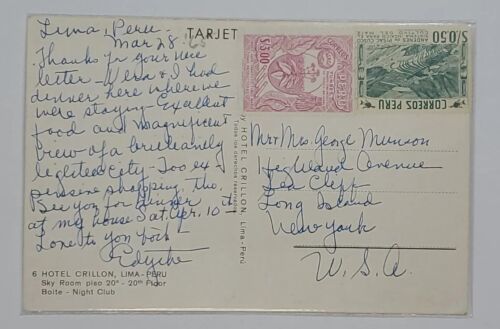 Lima, Peru.
Mar 28-65
Thanks for your nice
letter - Vera & I had
dinner here where we
were staying - Excellent
food and magnificent
view of a brilliantly
lighted City - Too ex-
pensive shopping, tho.
See you for dinner
at my house Sat. Apr. 10th
Love to you both
Edythe
6 HOTEL CRILLON, LIMA-PERU
Sky Room piso 20° - 20th Floor
Boite - Night Club
TARJET
HOTEL CRILLON, Lima-Perú
Todos los derechos reservados
S/3.00
CORREOS
PERU
S/. 0.50
ANDENES DE PISAC CUSCO
CORREOS PERU
Mr & Mrs. George Munson
Highland Avenue
Sea Cliff
Long Island
New York
U.S.A.